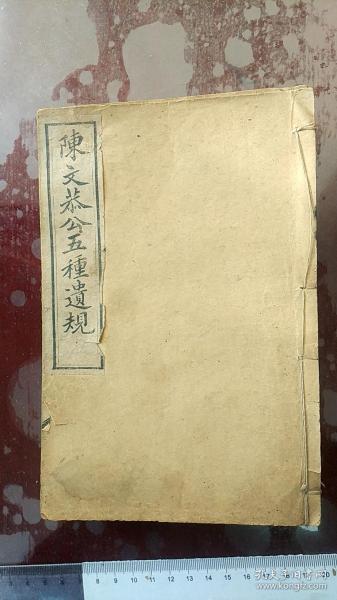 陳文恭公五種遺規
8 9 10 11 12 13 14 15 16 17 18 19 20
孔夫子旧书网
www.kongfz.com